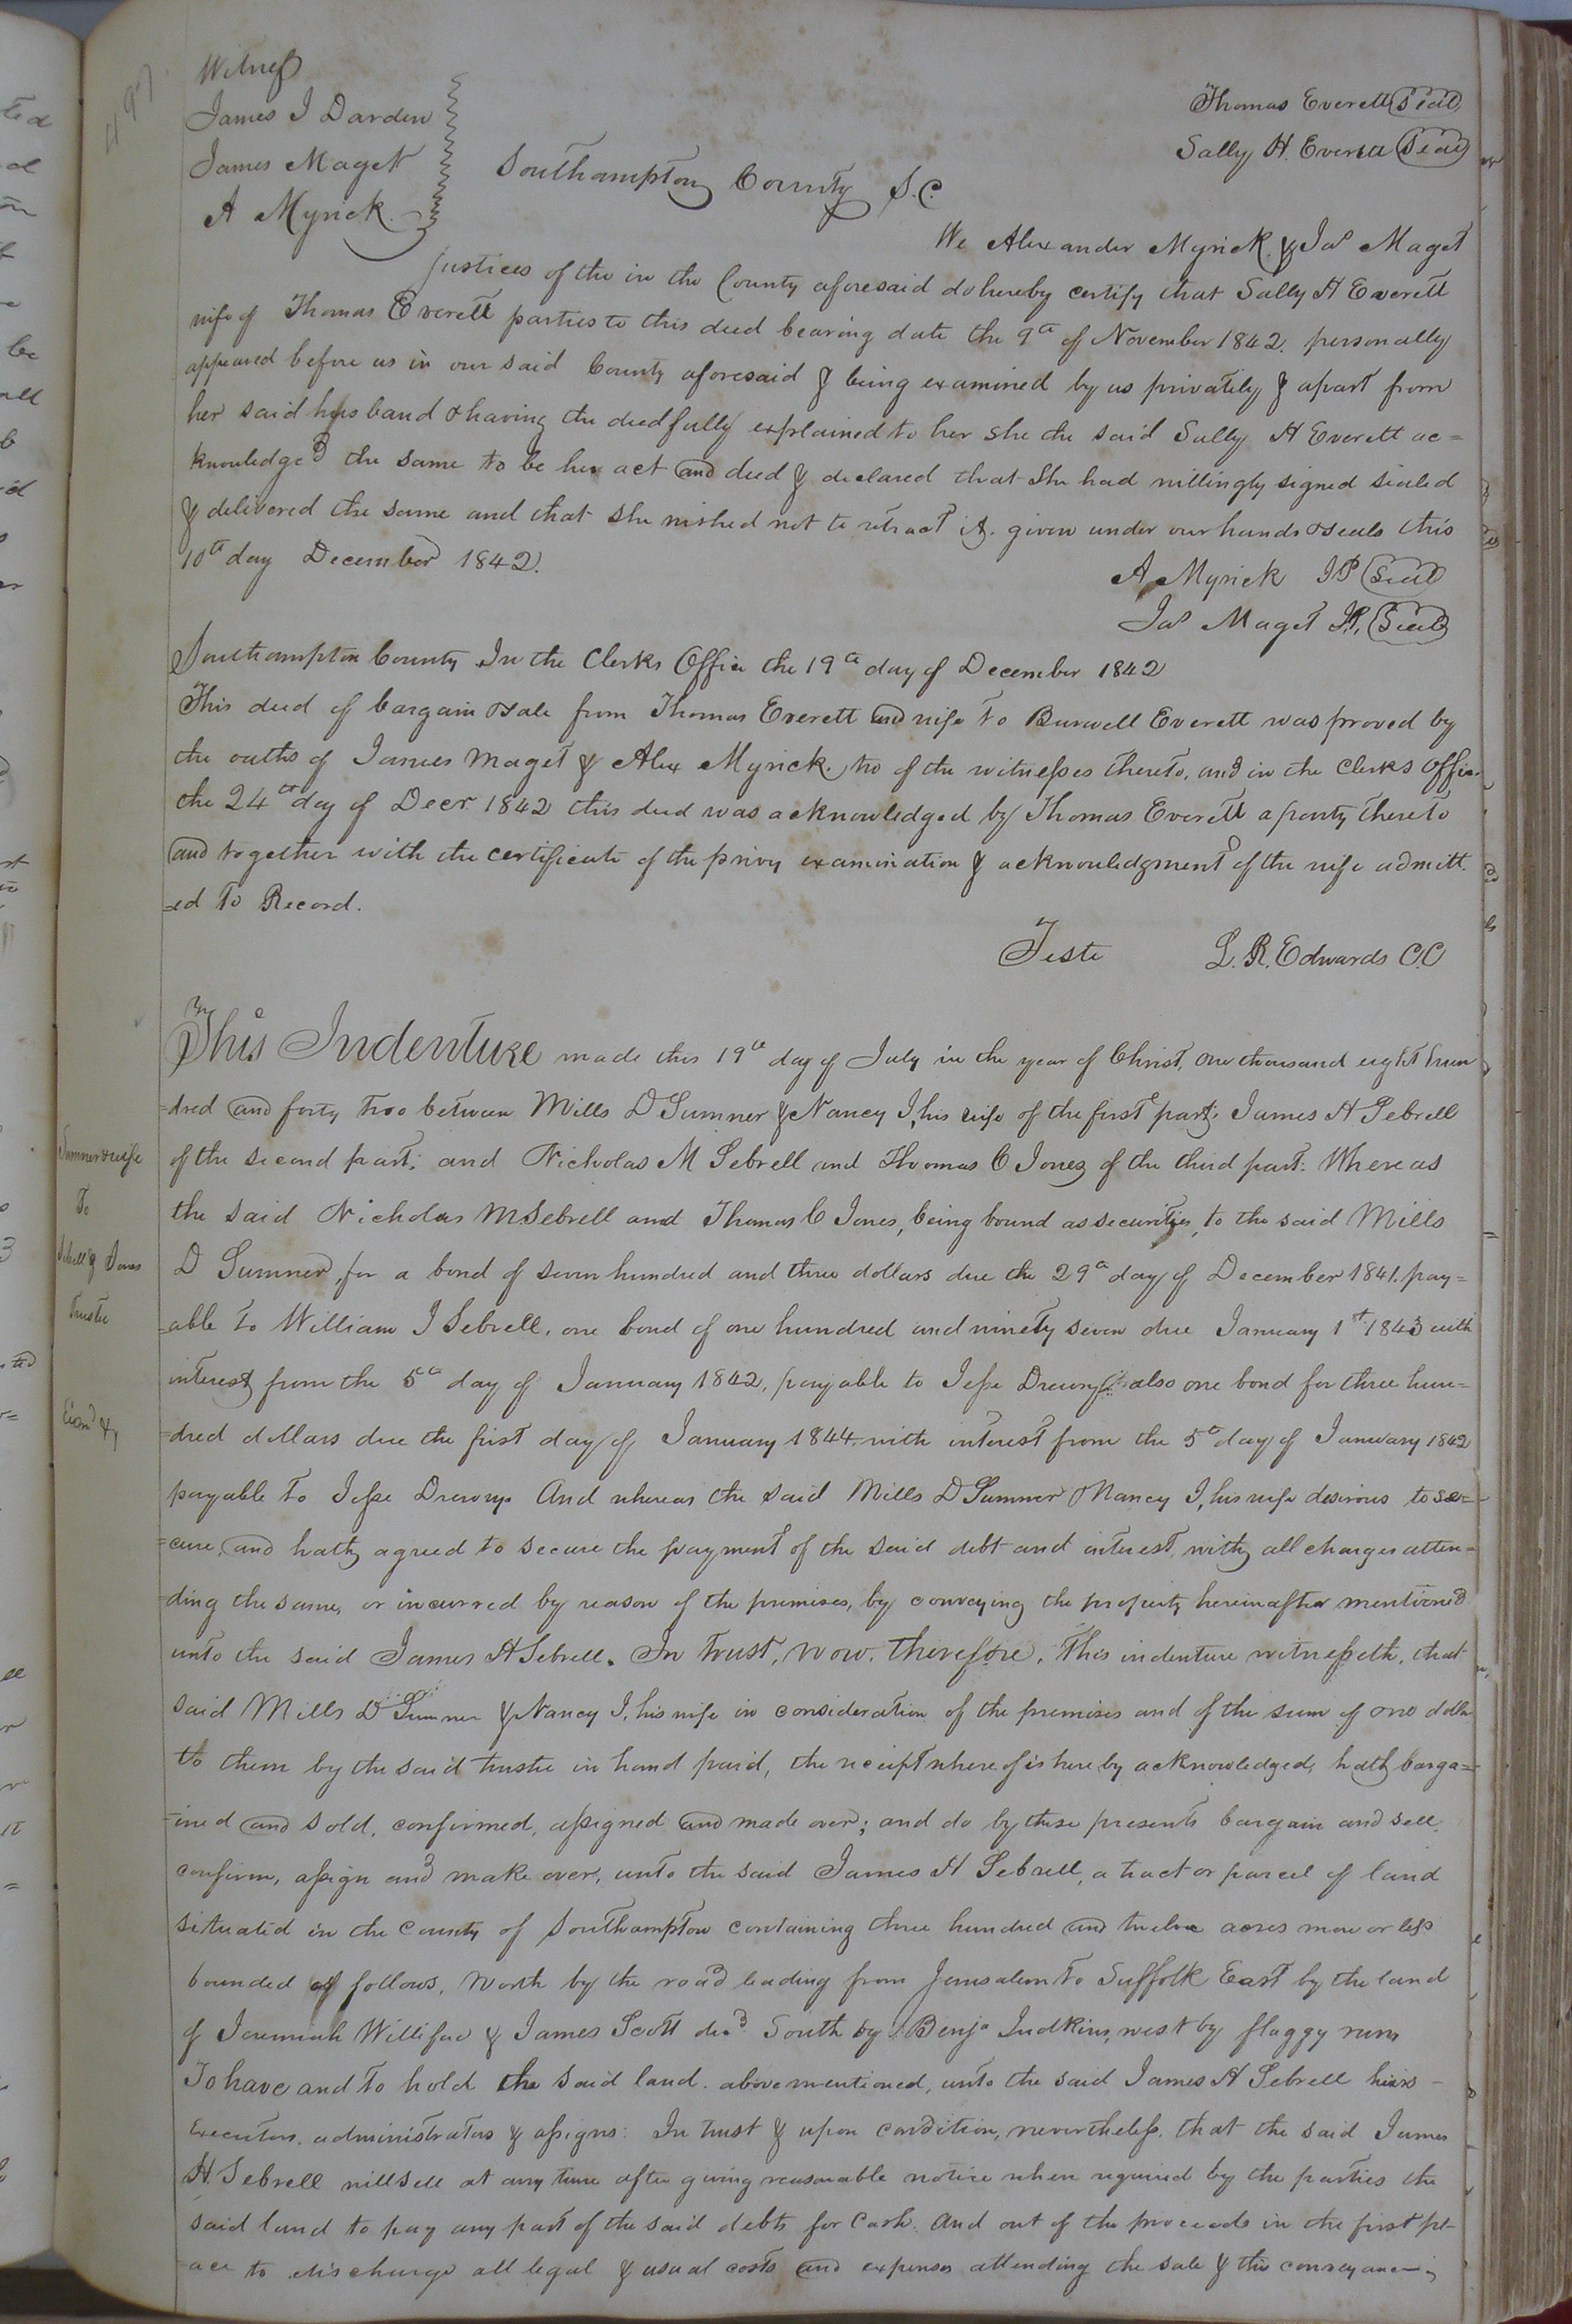 497
Witness
James J Darden
James Maget
A Myrick
Thomas Everett Seal
Sally H. Everett Seal
Southampton County S.C.
We Alexander Myrick & Jas Maget
justices of the in the County aforesaid do hereby certify that Sally H Everett
wife of Thomas Everett parties to this deed bearing date the 9th of November 1842. personally
appeared before us in our said County aforesaid & being examined by us privately & apart from
her said husband & having the deed fully explained to her she the said Sally H Everett ac=
knowledged the same to be her act and deed & declared that she had willingly signed sealed
& delivered the same and that she wished not to retract it. given under our hands & seals this
10th day December 1842.
A Myrick JP Seal
Jas Maget JP, Seal
Southampton County In the Clerks Office the 19th day of December 1842
This deed of bargain & sale from Thomas Everett and wife to Burwell Everett was proved by
the oaths of James Maget & Alex Myrick. two of the witnesses thereto, and in the Clerks Office
the 24th day of Decr 1842 this deed was acknowledged by Thomas Everett a party thereto
and together with the certificate of the privy examination & acknowledgment of the wife admitt
=ed to Record.
Teste L. R. Edwards C.C
This Indenture made this 19th day of July in the year of Christ, one thousand eight hun
=dred and forty two between Mills D Sumner & Nancy J, his wife of the first part; James H Sebrell
of the second part; and Nicholas M Sebrell and Thomas C Jones of the third part: Whereas
the said Nicholas M Sebrell and Thomas C Jones, being bound as securities, to the said Mills
D Sumner, for a bond of seven hundred and three dollars due the 29th day of December 1841. pay=
=able to William J Sebrell, one bond of one hundred and ninety seven due January 1st 1843 with
interest from the 5th day of January 1842, payable to Jesse Drewry also one bond for three hun=
=dred dollars due the first day of January 1844. with interest from the 5th day of January 1842
payable to Jesse Drewry. And whereas the said Mills D Sumner & Nancy J, his wife desirous to se=
=cure, and hath agreed to secure the payment of the said debt and interest, with all charges atten=
=ding the same, or incurred by reason of the premises, by conveying the property hereinafter mentioned
unto the said James H Sebrell. In trust, now, therefore, This indenture witnesseth, that
said Mills D Sumner & Nancy J, his wife in consideration of the premises and of the sum of one dollr
to them by the said trustee in hand paid, the receipt whereof is hereby acknowledged, hath barga=
=ined and sold, confirmed, assigned and made over; and do by these presents bargain and sell,
confirm, assign and make over, unto the said James H Sebrell, a tract or parcel of land
situated in the County of Southampton containing three hundred and twelve acres more or less
bounded as follows, North by the road leading from Jerusalem to Suffolk East by the land
of Jeremiah Williford & James Scott decd South by Benja Judkins, west by flaggy run,
To have and to hold the said land. above mentioned, unto the said James H Sebrell heirs
Executors, administrators & assigns: In trust & upon condition, nevertheless, that the said James
H. Sebrell will sell at any time after giving reasonable notice when required by the parties the
said land to pay any part of the said debts for Cash. And out of the proceeds in the first pl-
ace to discharge all legal & usual costs and expenses attending the sale & this conveyance
Sumner & wife
To
Sebrell & Jones
trustee
Examd